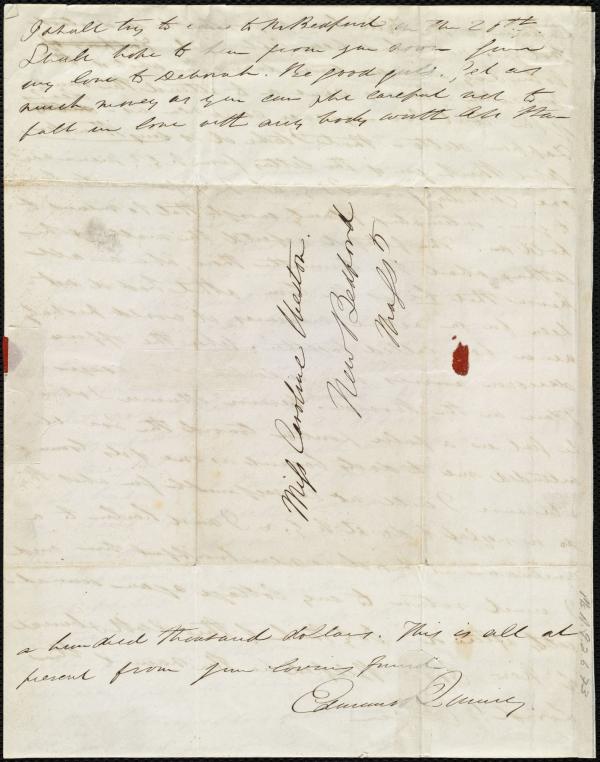 I shall try to come to N. Bedford on the 28th.
Shall hope to hear from you soon. Give
my love to Deborah. Be good girls. Get as
much money as you can & be careful not to
fall in love with any body worth less than
Miss Caroline Weston.
New Bedford
Mass.
5
a hundred thousand dollars. This is all at
present from your loving friend
Edmund Quincy.